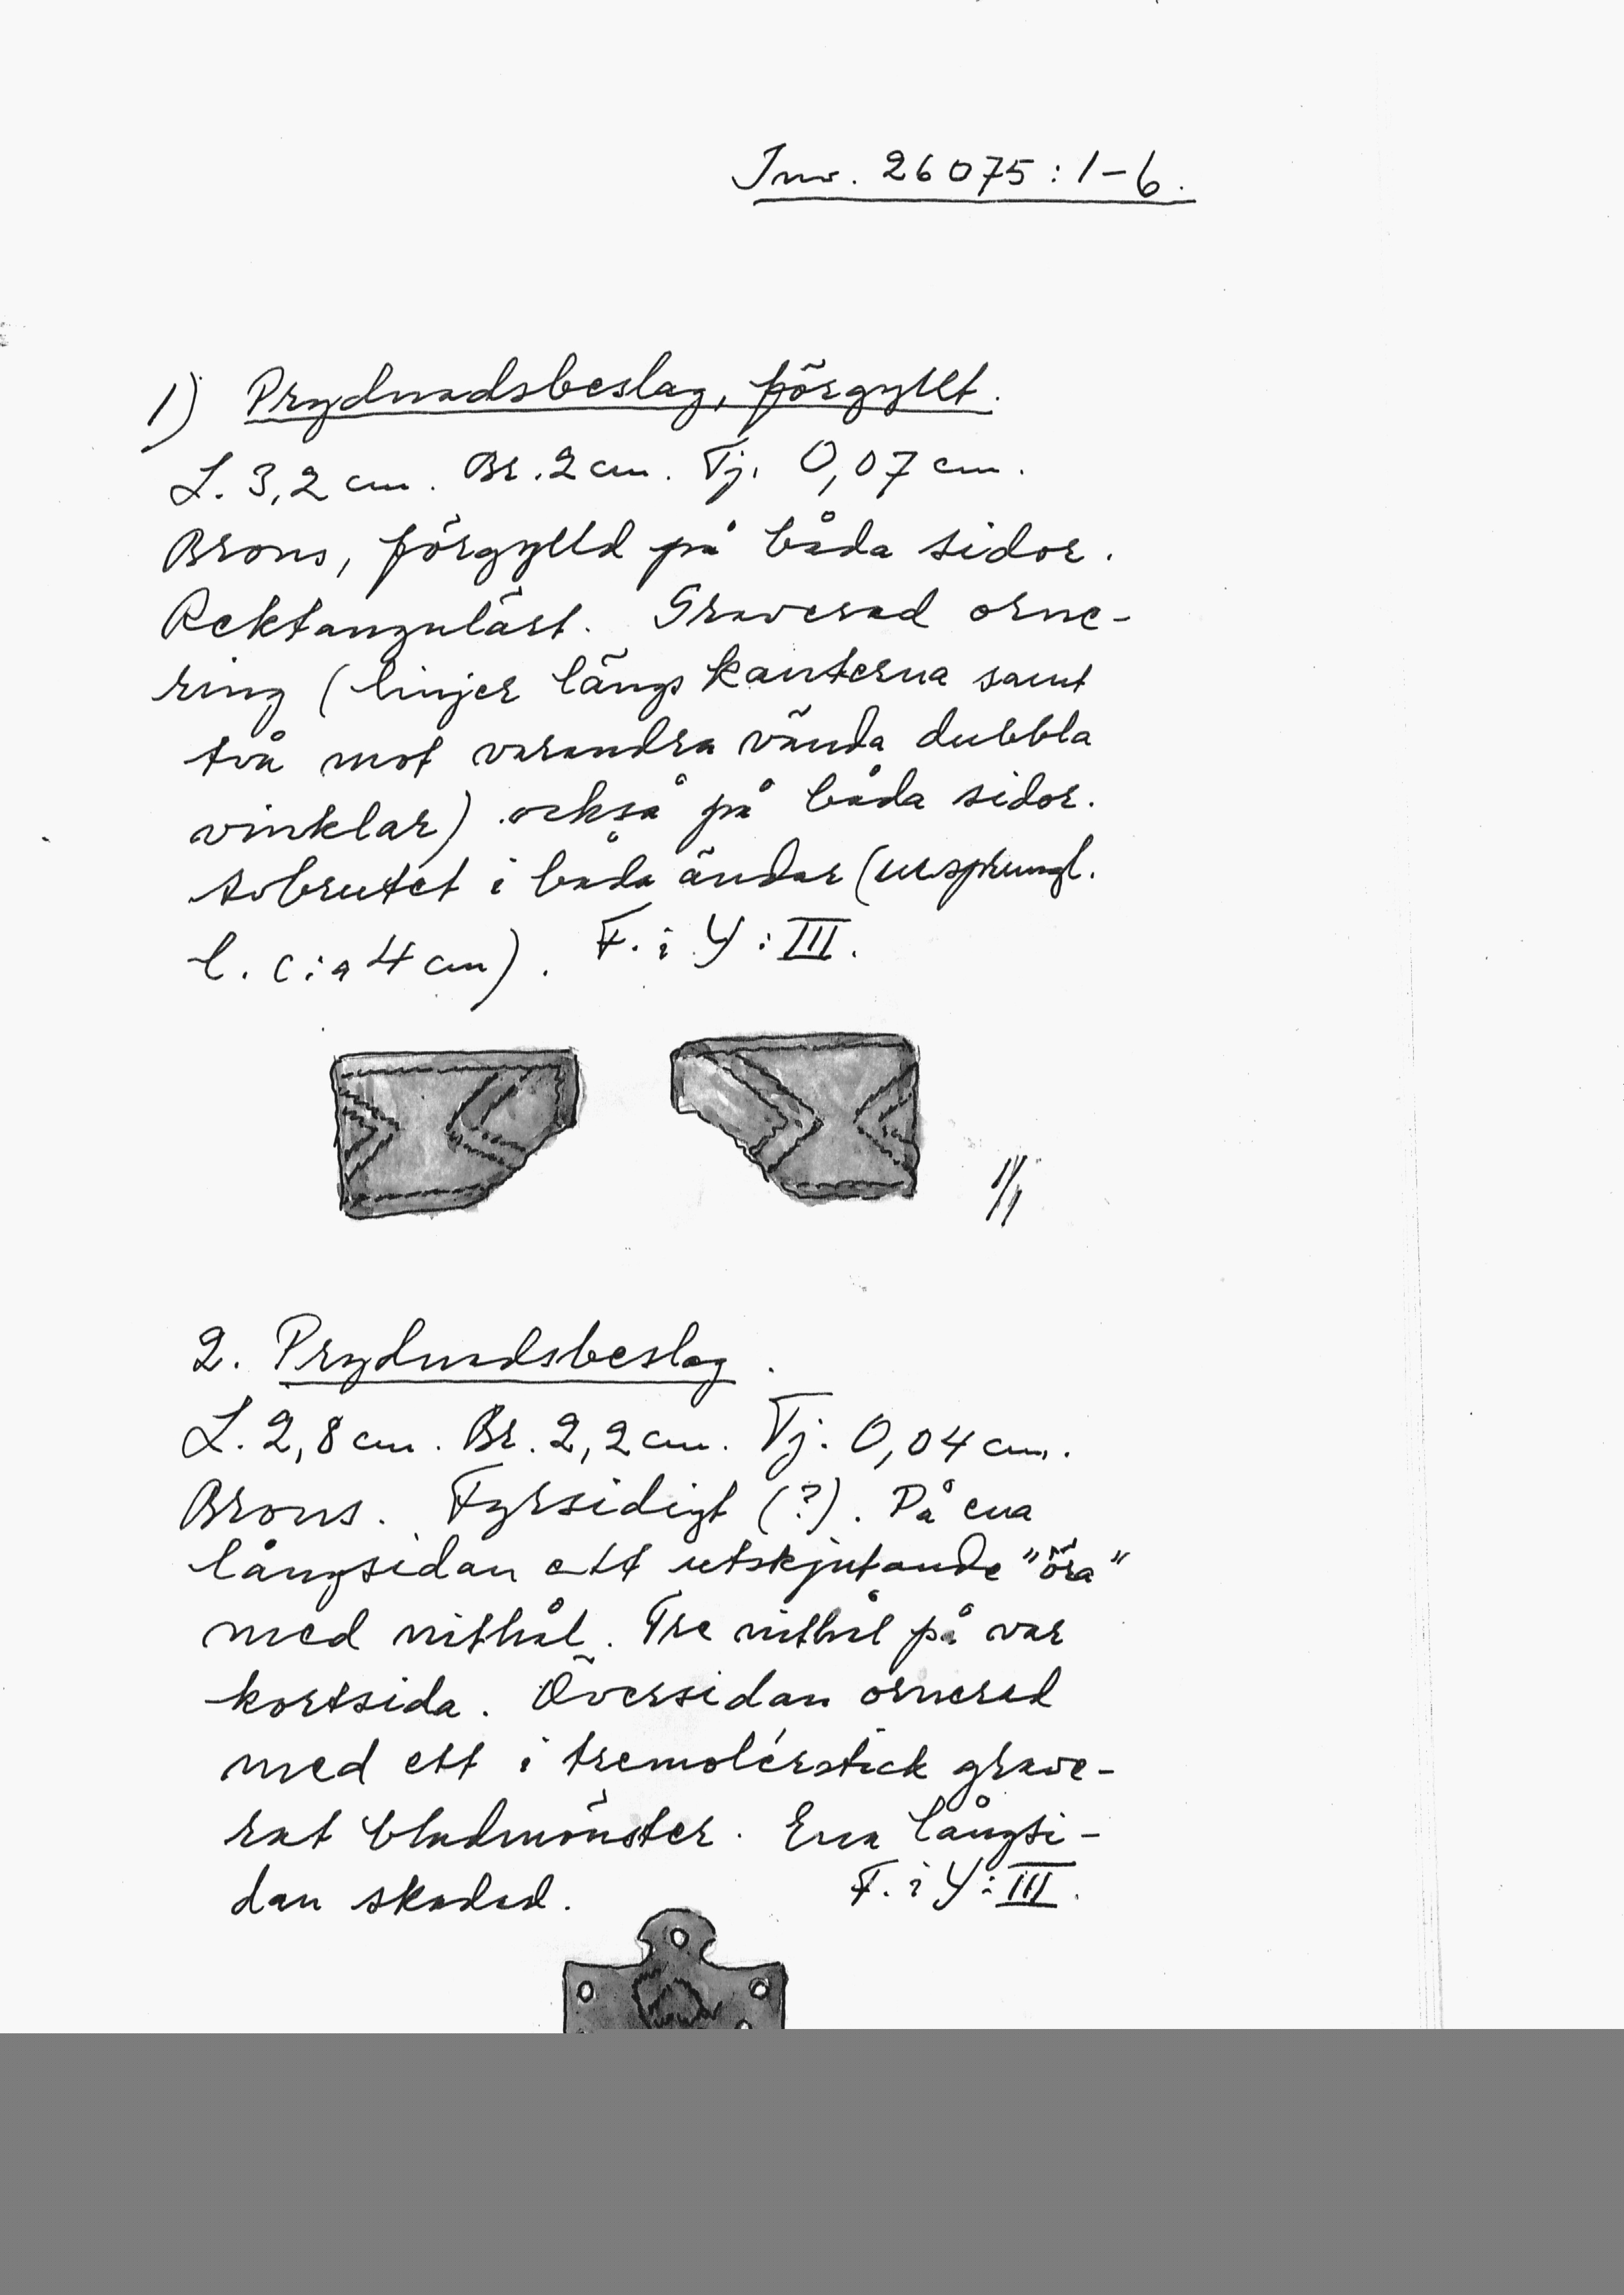 Inv. 26075:1-6.
1) Prydnadsbeslag, förgyllt.
L. 3,2 cm. Br. 2 cm. Tj. 0,07 cm.
Brons, förgylld på båda sidor.
Rektangulärt. Graverad orne-
ring (linjer längs kanterna samt
två mot varandra vända dubbla
vinklar) också på båda sidor.
Avbrutet i båda ändar (ursprungl.
l. c:a 4 cm). F. i Y:III.
1/1
2. Prydnadsbeslag.
L. 2,8 cm. Br. 2,2 cm. Tj. 0,04 cm.
Brons. Fyrsidigt (?). På ena
långsidan ett utskjutande "öra"
med nithål. Tre nithål på var
kortsida. Översidan ornerad
med ett i tremolérstick grave-
rat bladmönster. Ena långsi-
dan skadad. F. i Y:III.